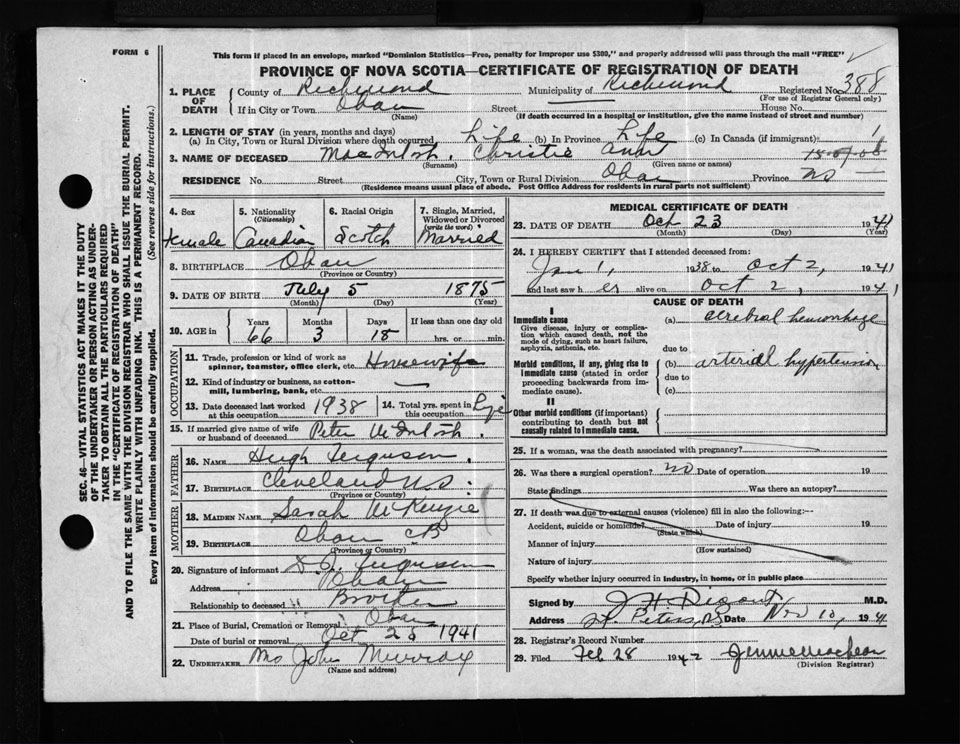 FORM 6
This form if placed in an envelope, marked "Dominion Statistics—Free, penalty for improper use $300," and properly addressed will pass through the mail "FREE"
PROVINCE OF NOVA SCOTIA—CERTIFICATE OF REGISTRATION OF DEATH
SEC. 46—VITAL STATISTICS ACT MAKES IT THE DUTY
OF THE UNDERTAKER OR PERSON ACTING AS UNDER-
TAKER TO OBTAIN ALL THE PARTICULARS REQUIRED
IN THE "CERTIFICATE OF REGISTRATION OF DEATH"
AND TO FILE THE SAME WITH THE DIVISION REGISTRAR WHO SHALL ISSUE THE BURIAL PERMIT.
WRITE PLAINLY WITH UNFADING INK. THIS IS A PERMANENT RECORD.
Every item of information should be carefully supplied. (See reverse side for instructions.)
1. PLACE OF DEATH
County of Richmond Municipality of Richmond Registered No. 388
(For use of Registrar General only)
If in City or Town Oban Street House No.
(Name) (If death occurred in a hospital or institution, give the name instead of street and number)
2. LENGTH OF STAY (in years, months and days)
(a) In City, Town or Rural Division where death occurred Life (b) In Province Life (c) In Canada (if immigrant)
3. NAME OF DECEASED MacIntosh, Christie Ann
(Surname) (Given name or names)
RESIDENCE No. Street City, Town or Rural Division Oban Province NS
(Residence means usual place of abode. Post Office Address for residents in rural parts not sufficient)
4. Sex
Female
5. Nationality (Citizenship)
Canadian
6. Racial Origin
Scotch
7. Single, Married, Widowed or Divorced (write the word)
Married
8. BIRTHPLACE Oban
(Province or Country)
9. DATE OF BIRTH July 5 1875
(Month) (Day) (Year)
10. AGE in Years Months Days If less than one day old
66 3 18 hrs. or min.
OCCUPATION
11. Trade, profession or kind of work as spinner, teamster, office clerk, etc. Housewife
12. Kind of industry or business, as cotton-mill, lumbering, bank, etc. —
13. Date deceased last worked at this occupation 1938
14. Total yrs. spent in this occupation Life
15. If married give name of wife or husband of deceased Peter McIntosh.
FATHER
16. NAME Hugh Ferguson.
17. BIRTHPLACE Cleveland N.S.
(Province or Country)
MOTHER
18. MAIDEN NAME Sarah McKenzie
19. BIRTHPLACE Oban CB
(Province or Country)
20. Signature of informant D. J. Ferguson
Address Oban
Relationship to deceased Brother
21. Place of Burial, Cremation or Removal Oban
Date of burial or removal Oct 25 1941
22. UNDERTAKER Mrs John Murray
(Name and address)
MEDICAL CERTIFICATE OF DEATH
23. DATE OF DEATH Oct 23 1941
(Month) (Day) (Year)
24. I HEREBY CERTIFY that I attended deceased from:
Jan 1, 1938 to Oct 2, 1941
and last saw her alive on Oct 2, 1941
CAUSE OF DEATH
I
Immediate cause
Give disease, injury or complication which caused death, not the mode of dying, such as heart failure, asphyxia, asthenia, etc.
(a) cerebral hemorrhage
due to
Morbid conditions, if any, giving rise to immediate cause (stated in order proceeding backwards from immediate cause).
(b) arterial hypertension
due to
(c)
II
Other morbid conditions (if important) contributing to death but not causally related to immediate cause.
25. If a woman, was the death associated with pregnancy?
26. Was there a surgical operation? no Date of operation 19
State findings Was there an autopsy?
27. If death was due to external causes (violence) fill in also the following:—
Accident, suicide or homicide? Date of injury 19
(State which)
Manner of injury
(How sustained)
Nature of injury
Specify whether injury occurred in industry, in home, or in public place
Signed by M.D.
Address St. Peters, NS Date Nov 10, 1941
28. Registrar's Record Number
29. Filed Feb 28 1942 Jennie MacLean
(Division Registrar)